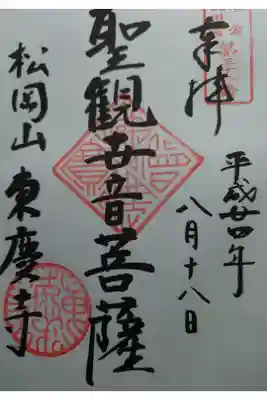 奉拝
平成廿四年
八月十八日
聖観世音菩薩
松岡山東慶寺